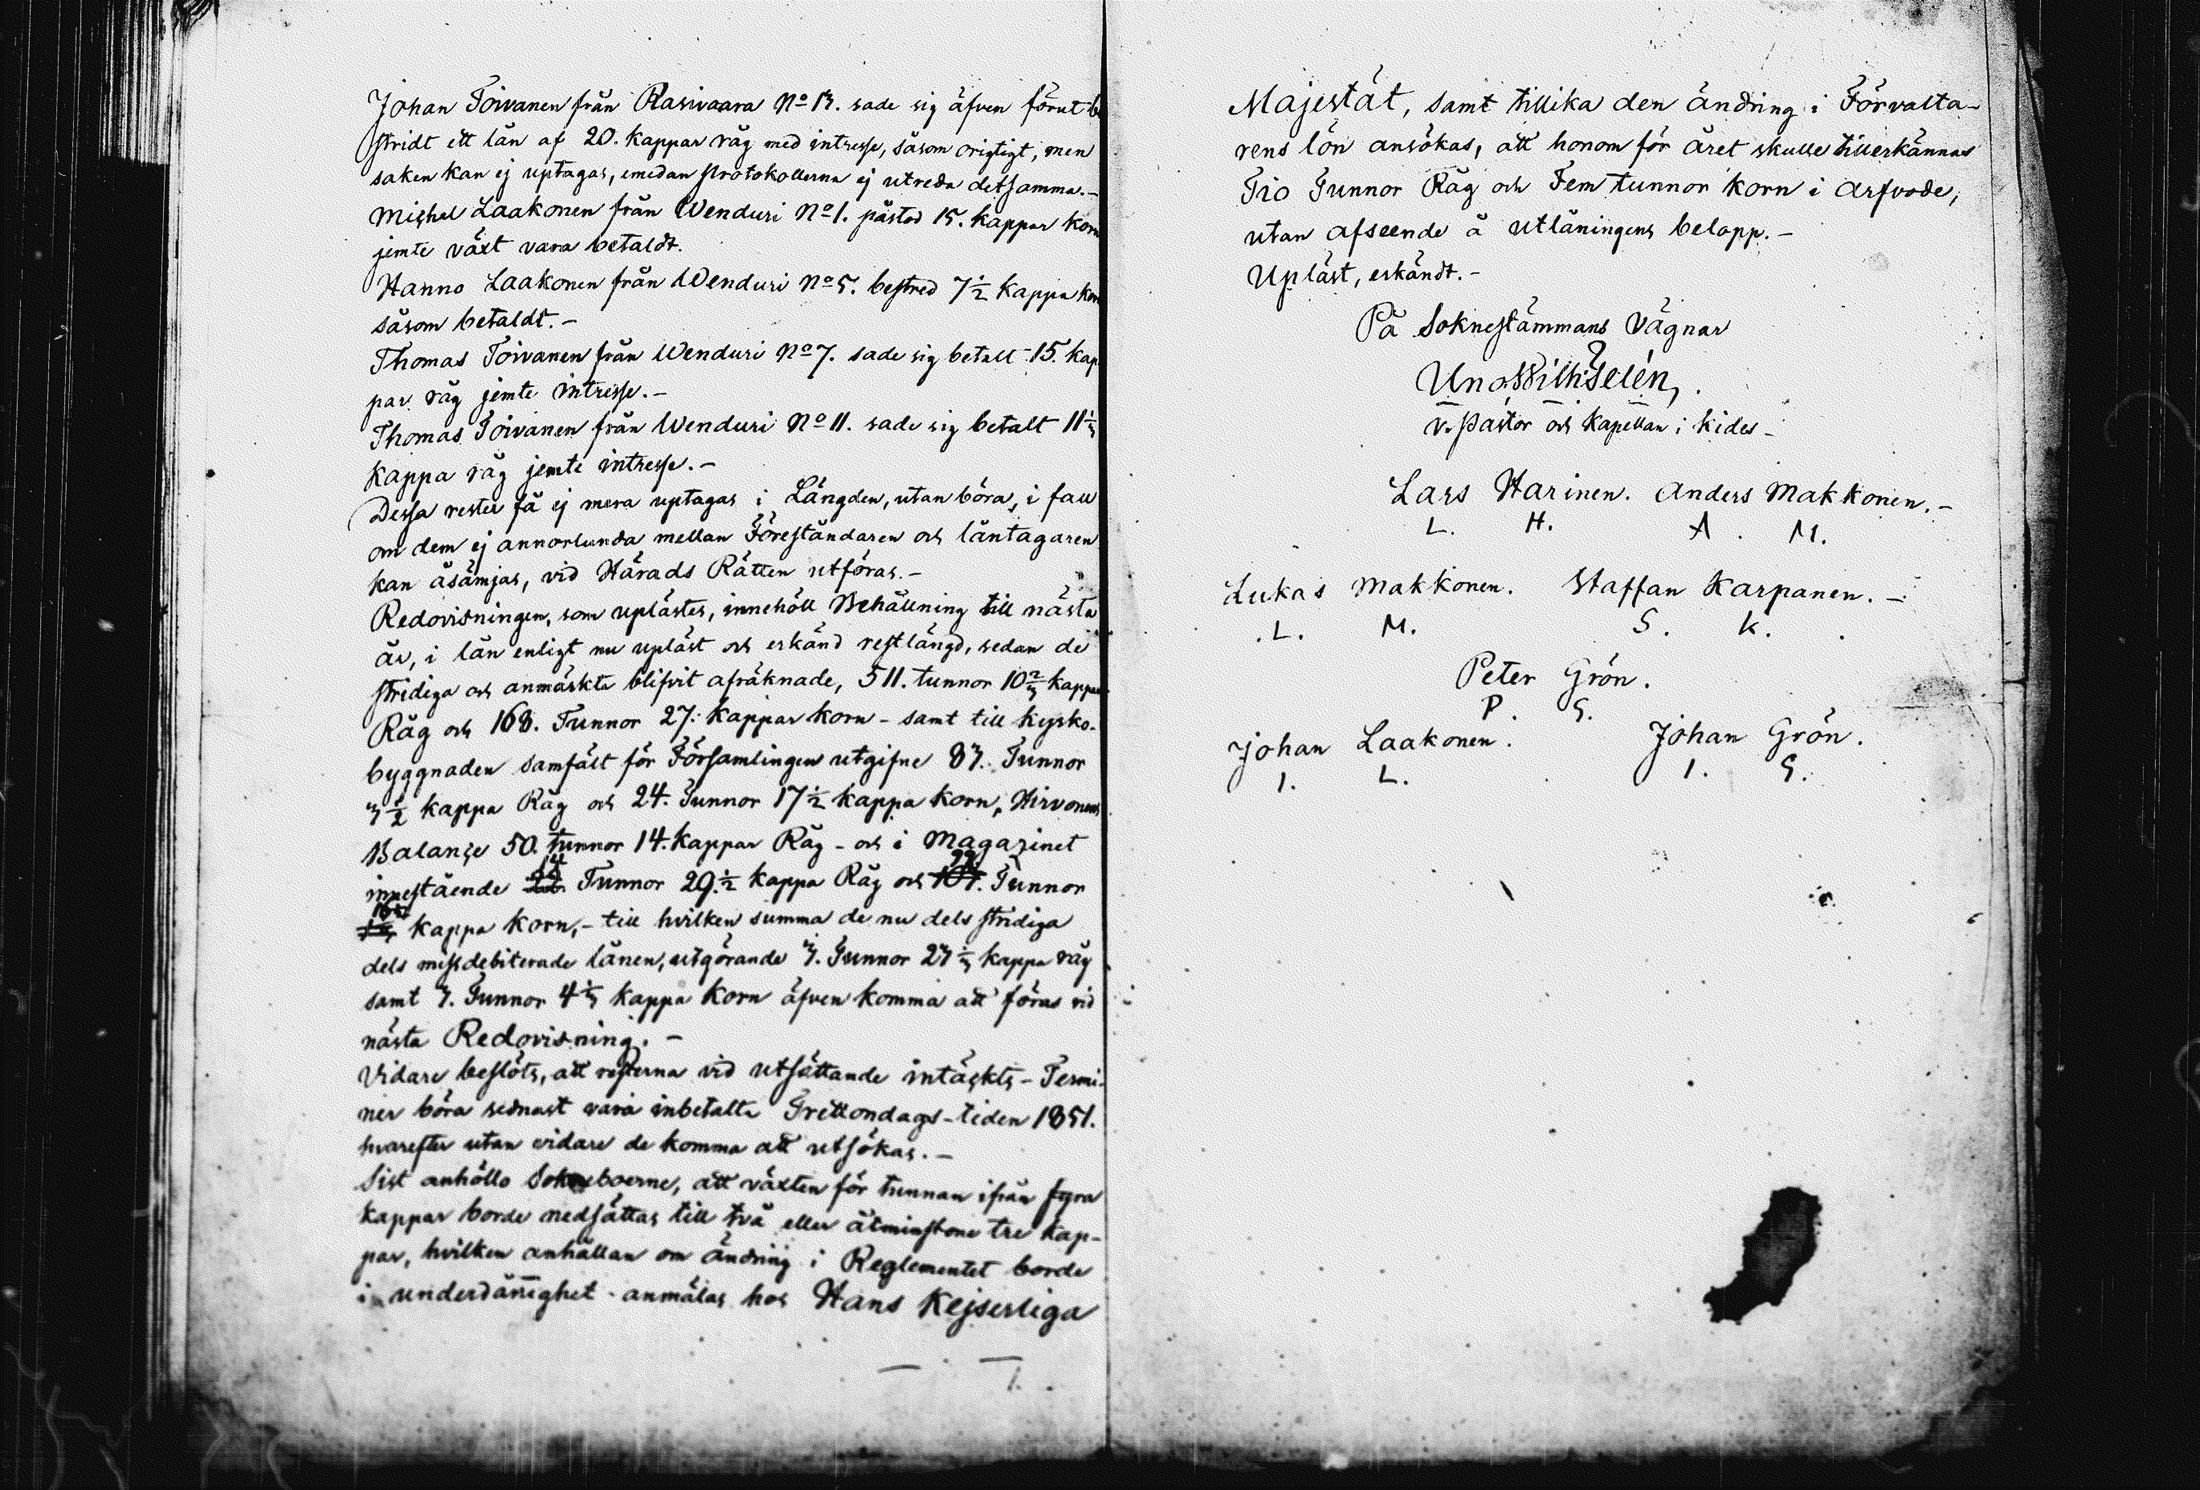 Johan Toivanen från Rasivaara No 13. sade sig äfven förut be
stridt ett lån af 20. kappar råg med intresse, såsom origtigt, men
saken kan ej uptagas, emedan Protokollerna ej utreda detsamma.-
Michel Laakonen från Wenduri No 1. påstod 15. kappar korn
jemte växt vara betaldt.
Hanno Laakonen från Wenduri No 5. bestred 7 1/2 kappa korn
såsom betaldt.-
Thomas Toivanen från Wenduri No 7. sade sig betalt 15. kap
par råg jemte intresse.-
Thomas Toivanen från Wenduri No 11. sade sig betalt 11 1/3
kappa råg jemte intresse.-
Dessa rester få ej mera uptagas i Längden, utan böra, i fall
om dem ej annorlunda mellan Föreståndaren och låntagaren
kan åsämjas, vid Härads Rätten utföras.-
Redovisningen, som uplästes, innehöll Behållning till nästa
år, i lån enligt nu upläst och erkänd restlängd, sedan de
stridiga och anmärkta blifvit afräknade, 511. tunnor 10 2/3 kappar
Råg och 168. Tunnor 27. kappar korn - samt till kyrko-
byggnaden samfält för Församlingen utgifne 83. Tunnor
3 1/2 kappa Råg och 24. Tunnor 17 1/2 kappa korn, Hirvonens
Balançe 50. tunnor 14. kappar Råg - och i Magazinet
innestående 14 Tunnor 29 1/2 kappa Råg och 99. Tunnor
kappa korn,- till hvilken summa de nu dels stridiga
dels missdebiterade lånen, utgörande 3. Tunnor 23 1/3 kappa råg
samt 3. Tunnor 4 1/3 kappa korn äfven komma att föras vid
nästa Redovisning.-
Vidare beslöts, att resterna vid utsättande intäckts-Termi-
ner böra sednast vara inbetalta Trettondags-tiden 1851.
hvarefter utan vidare de komma att utsökas.-
Sist anhöllo Sokneboerne, att växten för tunnan ifrån fyra
kappar borde nedsättas till två eller åtminstone tre kap-
par, hvilken anhållan om ändring i Reglementet borde
i underdånighet anmälas hos Hans Kejserliga
Majestät, samt tillika den ändring i Förvalta-
rens lön ansökas, att honom för året skulle tillerkännas
Tio Tunnor Råg och Fem tunnor korn i arfvode,
utan afseende å utlåningens belopp.-
Upläst, erkändt.-
På Soknestämmans Vägnar
Uno Wilh Selén,
v. Pastor och Kapellan i Kides-
Lars Harinen. Anders Makkonen.-
L. H. A. M.
Lukas Makkonen. Staffan Karpanen.-
L. M. S. K.
Peter Grön.
P. G.
Johan Laakonen. Johan Grön.
I. L. I. G.